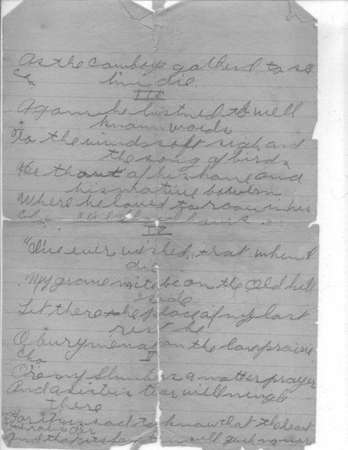 As the Cowboys gatherd to see
him die.
III
Again he listned to well
known words
To the winds soft sigh and
the song of birds
He thout of his home and
his native bowers
Where he loved to roam in his
Cho
IV
"I've ever wished that when I
die
My grave mite be on the old hill
side
Let there the place of my last
rest be
O bury me not on the lone prairie
Cho V
O're my slumbers a mother prayer
And a sisters tear will mingle
there
For its sad to know that the heart
throb
And that its fountain will gush no more